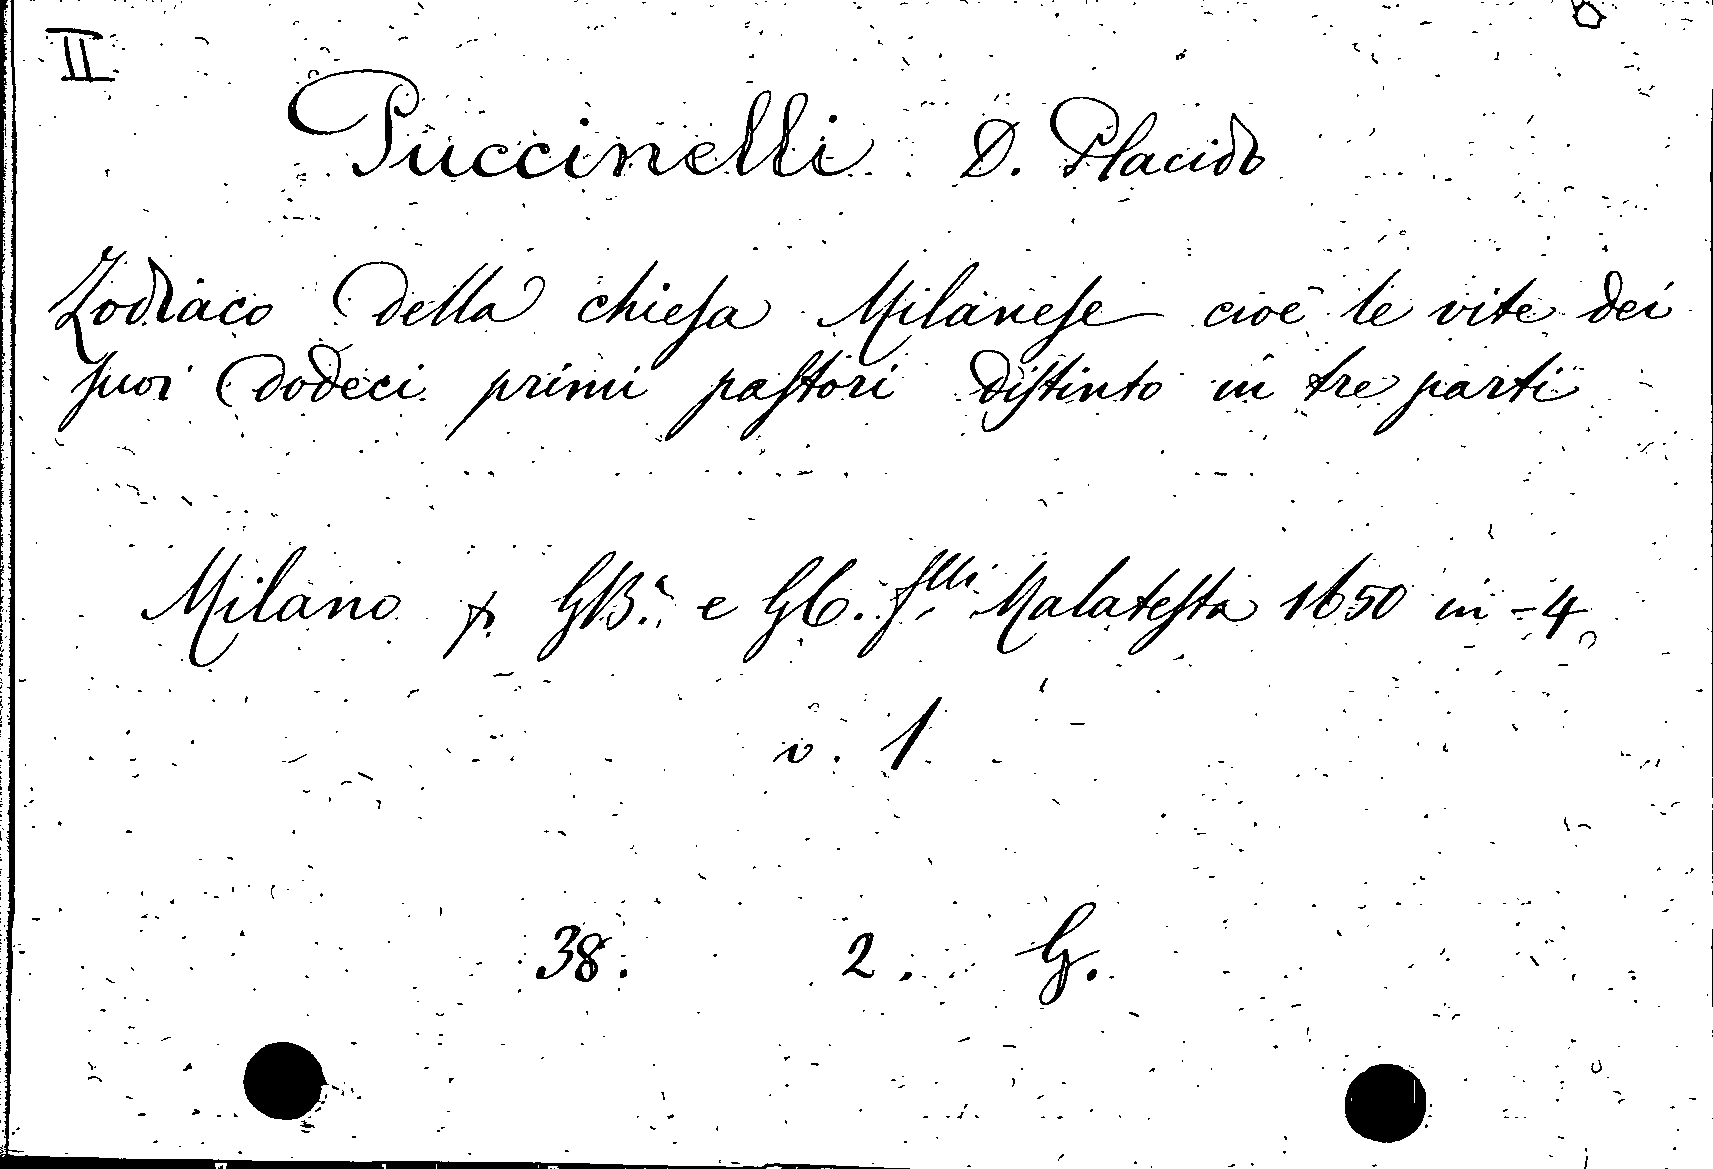 II
Puccinelli D. Placido
Zodiaco della chiesa Milanese cioè le vite dei
suoi dodeci primi pastori distinto in tre parti
Milano p. GB. e GC. flli Malatesta 1650 in-4
v. 1
38. 2. G.